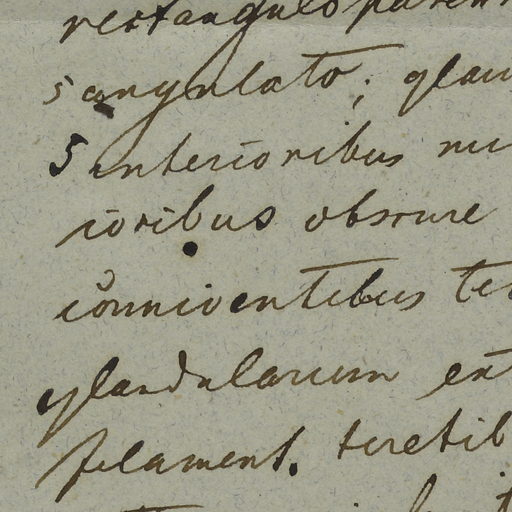 rectangulo paten
5 angulato; glan
5 anterioribus mi
ioribus obscure
conniventibus te
glandularum ext
filament. teretib